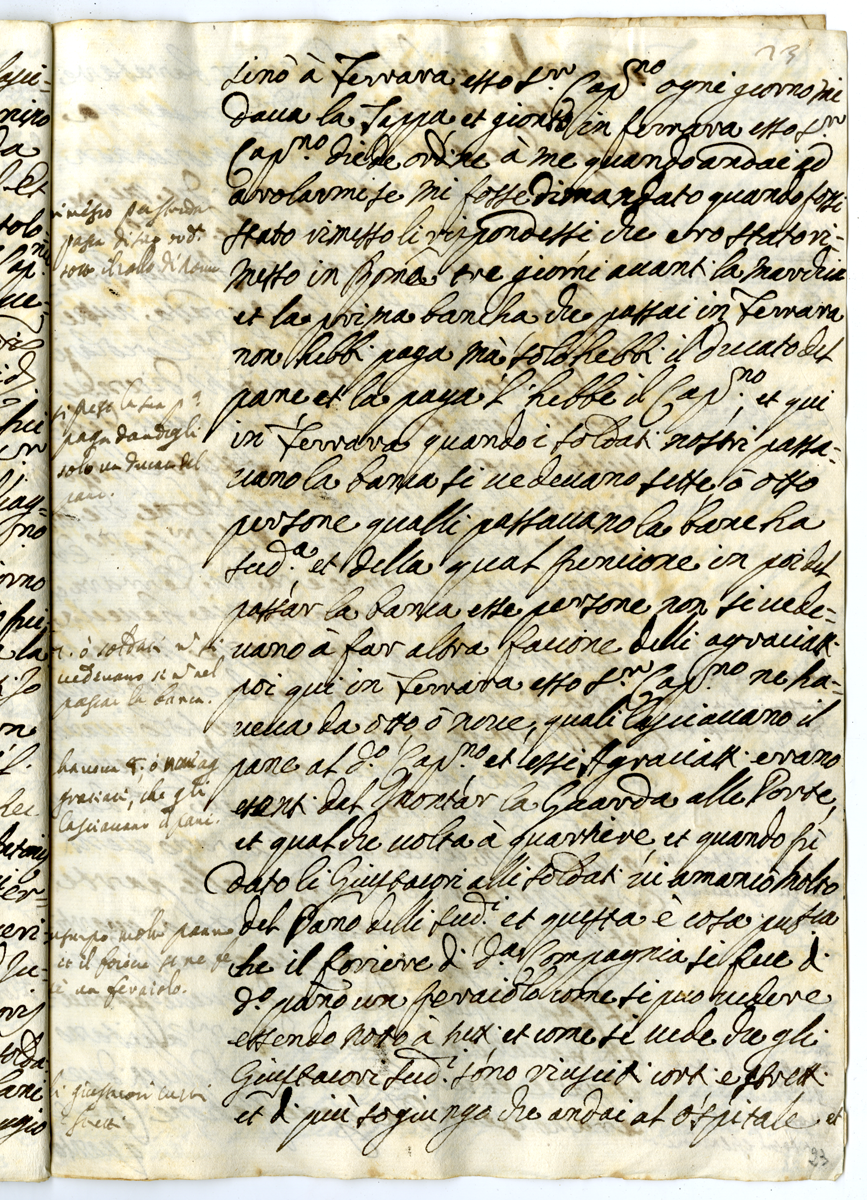 23
sino à Ferrara esso S.r Cap.no ogni giorno mi
daua la Tappa et gionto in ferrara esso S.r
Cap.no diede ordine à me quando andai ad
arolarmi se mi fosse dimandato quando fossi
stato rimesso li rispondessi che ero stato ri-
messo in Roma tre giorni auanti la marchia
et la prima bancha che passai in Ferrara
non hebbi paga mà solo hebbi il Ducato del
pane et la paga l'hebbe il Cap.no, et qui
in Ferrara quando i soldati nostri passa-
uano la banca si uedeuano sette, ò otto
persone qualli passauano la bancha
sud.a et della qual funcione in poi del
passar la banca esse persone non si uede-
uano à far altra facione delli agraciati
poi qui in Ferrara esso S.r Cap.no ne ha-
ueua da otto ò noue, quali lasciauano il
pane al d.o Cap.no et essi Agraciati erano
esenti del Montar la Guarda alle Porte,
et qualche uolta à quartiere, et quando fù
dato li Giustacori alli soldati ui amancò molto
del Pano delli sud.i et questa è cosa
che il foriere d d.a Compagnia si fece d
d.o pano un feraiolo come si può uedere
essendo noto à tutti et come si uede che gli
Giustacori sud.i sono riusciti corti e stretti
et d più sogiungo che andai al ospitale et
rimesso
paga
sotto il rollo di Roma
paga dandogli
solo un ducato del
pane.
ò soldati n si
uedeuano se n nel
passar la banca.
haueua 8. ò noue ag
graciati, che gli
lasciauano il pane.
molto panno
et il foriere se ne fe
ce un feraiolo.
li giustacori curti
stretti
23